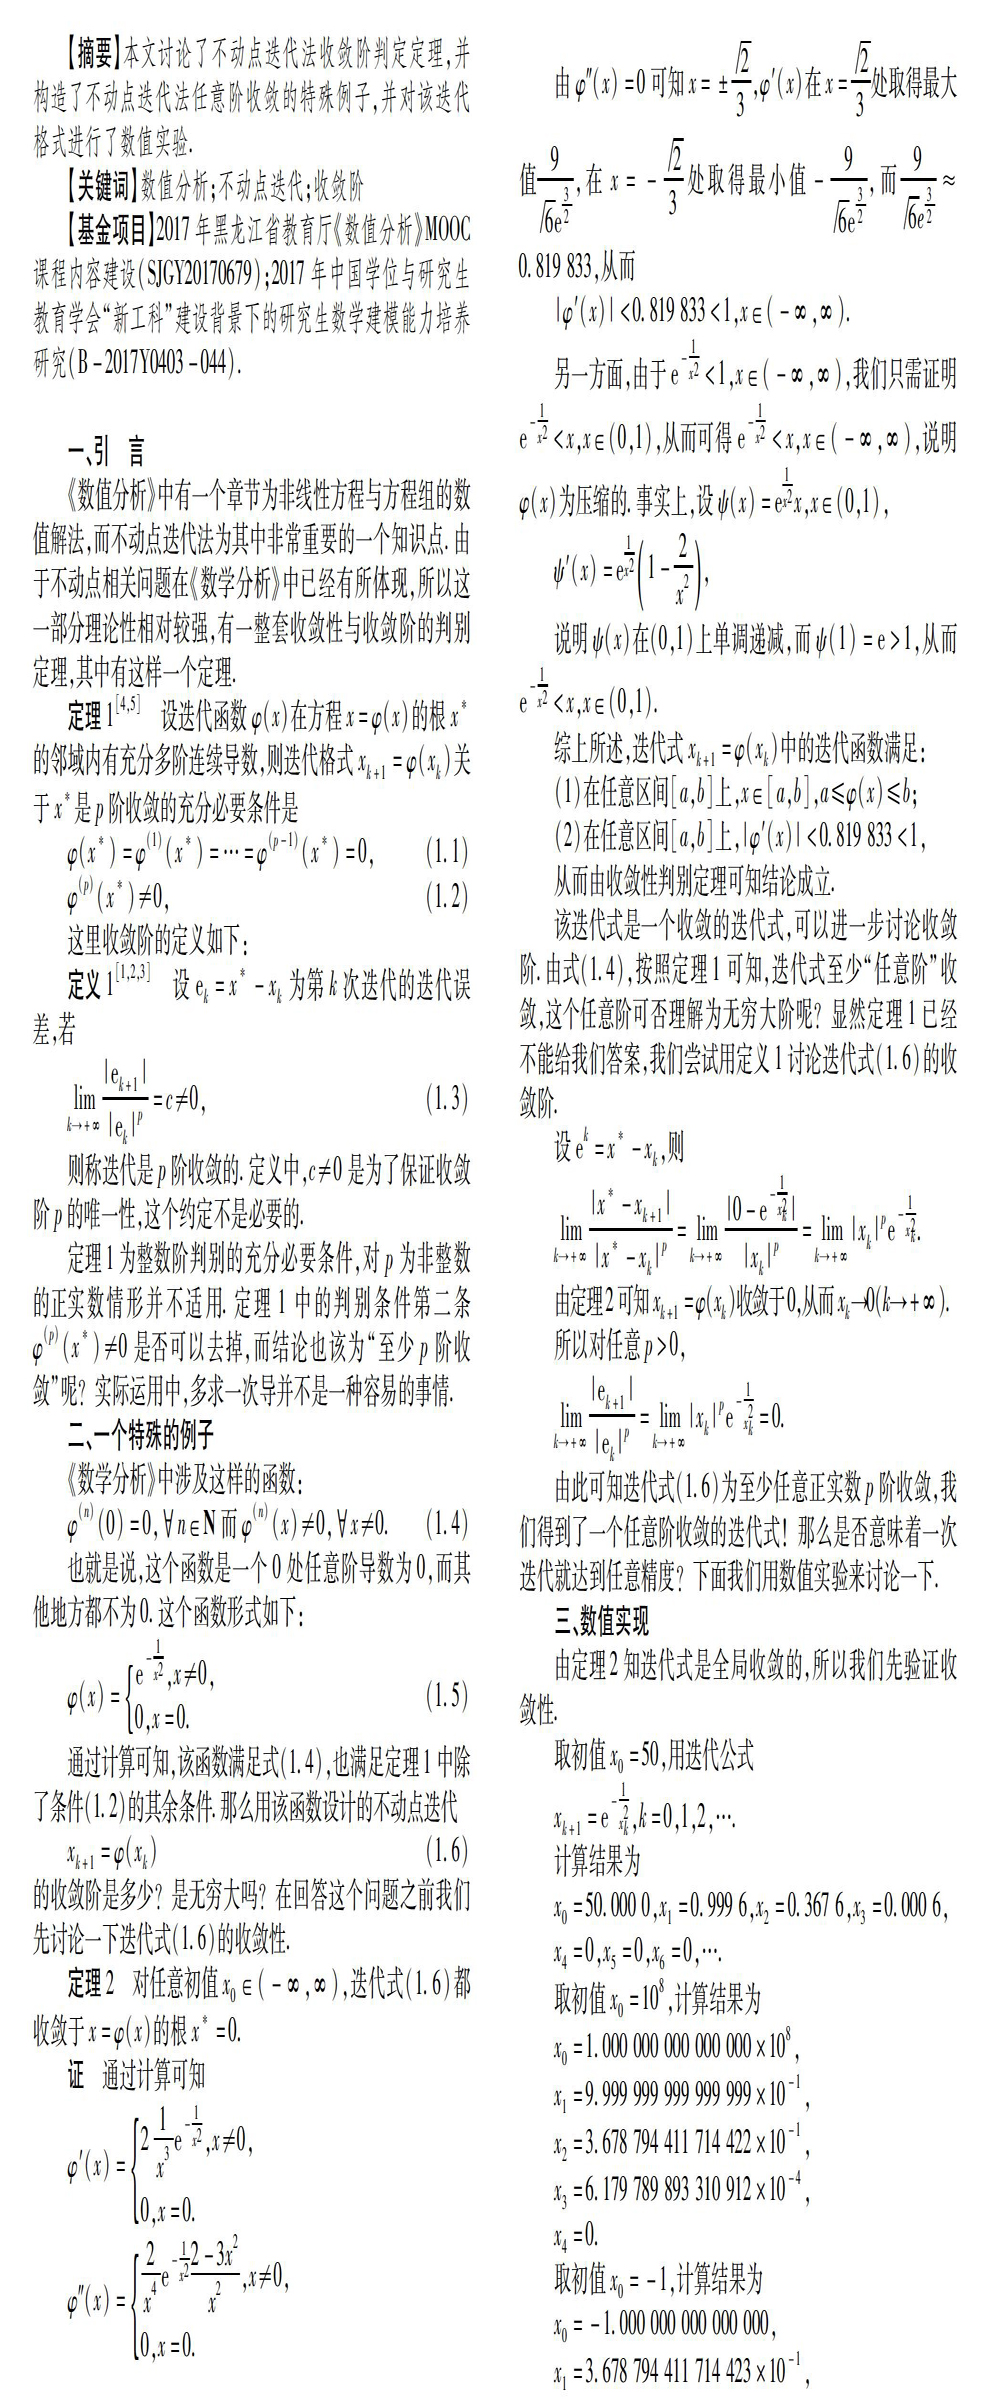 【摘要】本文讨论了不动点迭代法收敛阶判定定理,并
构造了不动点迭代法任意阶收敛的特殊例子,并对该迭代
格式进行了数值实验.
【关键词】数值分析;不动点迭代;收敛阶
【基金项目】2017 年黑龙江省教育厅《数值分析》MOOC
课程内容建设(SJGY20170679);2017 年中国学位与研究生
教育学会“新工科”建设背景下的研究生数学建模能力培养
研究(B-2017Y0403-044).
一、引 言
《数值分析》中有一个章节为非线性方程与方程组的数
值解法,而不动点迭代法为其中非常重要的一个知识点.由
于不动点相关问题在《数学分析》中已经有所体现,所以这
一部分理论性相对较强,有一整套收敛性与收敛阶的判别
定理,其中有这样一个定理.
定理 1^[4,5] 设迭代函数 φ(x)在方程 x=φ(x)的根 x^*
的邻域内有充分多阶连续导数,则迭代格式 x_{k+1}=φ(x_k)关
于 x^* 是 p 阶收敛的充分必要条件是
φ(x^*)=φ^{(1)}(x^*)=…=φ^{(p-1)}(x^*)=0, (1.1)
φ^{(p)}(x^*)≠0, (1.2)
这里收敛阶的定义如下:
定义 1^[1,2,3] 设 e_k=x^*-x_k 为第 k 次迭代的迭代误
差,若
lim_{k→+∞} |e_{k+1}|/|e_k|^p=c≠0, (1.3)
则称迭代是 p 阶收敛的.定义中,c≠0 是为了保证收敛
阶 p 的唯一性,这个约定不是必要的.
定理 1 为整数阶判别的充分必要条件,对 p 为非整数
的正实数情形并不适用.定理 1 中的判别条件第二条
φ^{(p)}(x^*)≠0 是否可以去掉,而结论也该为“至少 p 阶收
敛”呢? 实际运用中,多求一次导并不是一种容易的事情.
二、一个特殊的例子
《数学分析》中涉及这样的函数:
φ^{(n)}(0)=0,∀n∈N 而 φ^{(n)}(x)≠0,∀x≠0. (1.4)
也就是说,这个函数是一个 0 处任意阶导数为 0,而其
他地方都不为 0.这个函数形式如下:
φ(x)={e^{-1/x^2},x≠0,
0,x=0. (1.5)
通过计算可知,该函数满足式(1.4),也满足定理 1 中除
了条件(1.2)的其余条件.那么用该函数设计的不动点迭代
x_{k+1}=φ(x_k) (1.6)
的收敛阶是多少? 是无穷大吗? 在回答这个问题之前我们
先讨论一下迭代式(1.6)的收敛性.
定理 2 对任意初值 x_0∈(-∞,∞),迭代式(1.6)都
收敛于 x=φ(x)的根 x^*=0.
证 通过计算可知
φ′(x)={2 1/x^3 e^{-1/x^2},x≠0,
0,x=0.
φ″(x)={2/x^4 e^{-1/x^2} (2-3x^2)/x^2,x≠0,
0,x=0.
由 φ″(x)=0 可知 x=±√2/3,φ′(x)在 x=√2/3 处取得最大
值 9/(√6e^{3/2}),在 x=-√2/3 处取得最小值 -9/(√6e^{3/2}),而 9/(√6e^{3/2})≈
0.819 833,从而
|φ′(x)|<0.819 833<1,x∈(-∞,∞).
另一方面,由于 e^{-1/x^2}<1,x∈(-∞,∞),我们只需证明
e^{-1/x^2}<x,x∈(0,1),从而可得 e^{-1/x^2}<x,x∈(-∞,∞),说明
φ(x)为压缩的.事实上,设 ψ(x)=e^{1/x^2}x,x∈(0,1),
ψ′(x)=e^{1/x^2}(1-2/x^2),
说明 ψ(x)在(0,1)上单调递减,而 ψ(1)=e>1,从而
e^{-1/x^2}<x,x∈(0,1).
综上所述,迭代式 x_{k+1}=φ(x_k)中的迭代函数满足:
(1)在任意区间[a,b]上,x∈[a,b],a≤φ(x)≤b;
(2)在任意区间[a,b]上,|φ′(x)|<0.819 833<1,
从而由收敛性判别定理可知结论成立.
该迭代式是一个收敛的迭代式,可以进一步讨论收敛
阶.由式(1.4),按照定理 1 可知,迭代式至少“任意阶”收
敛,这个任意阶可否理解为无穷大阶呢? 显然定理 1 已经
不能给我们答案,我们尝试用定义 1 讨论迭代式(1.6)的收
敛阶.
设 e^k=x^*-x_k,则
lim_{k→+∞} |x^*-x_{k+1}|/|x^*-x_k|^p=lim_{k→+∞} |0-e^{-1/x_k^2}|/|x_k|^p=lim_{k→+∞}|x_k|^p e^{-1/x_k^2}.
由定理 2 可知 x_{k+1}=φ(x_k)收敛于 0,从而 x_k→0(k→+∞).
所以对任意 p>0,
lim_{k→+∞} |e_{k+1}|/|e_k|^p=lim_{k→+∞}|x_k|^p e^{-1/x_k^2}=0.
由此可知迭代式(1.6)为至少任意正实数 p 阶收敛,我
们得到了一个任意阶收敛的迭代式! 那么是否意味着一次
迭代就达到任意精度? 下面我们用数值实验来讨论一下.
三、数值实现
由定理 2 知迭代式是全局收敛的,所以我们先验证收
敛性.
取初值 x_0=50,用迭代公式
x_{k+1}=e^{-1/x_k^2},k=0,1,2,….
计算结果为
x_0=50.000 0,x_1=0.999 6,x_2=0.367 6,x_3=0.000 6,
x_4=0,x_5=0,x_6=0,….
取初值 x_0=10^8,计算结果为
x_0=1.000 000 000 000 000×10^8,
x_1=9.999 999 999 999 999×10^{-1},
x_2=3.678 794 411 714 422×10^{-1},
x_3=6.179 789 893 310 912×10^{-4},
x_4=0.
取初值 x_0=-1,计算结果为
x_0=-1.000 000 000 000 000,
x_1=3.678 794 411 714 423×10^{-1},